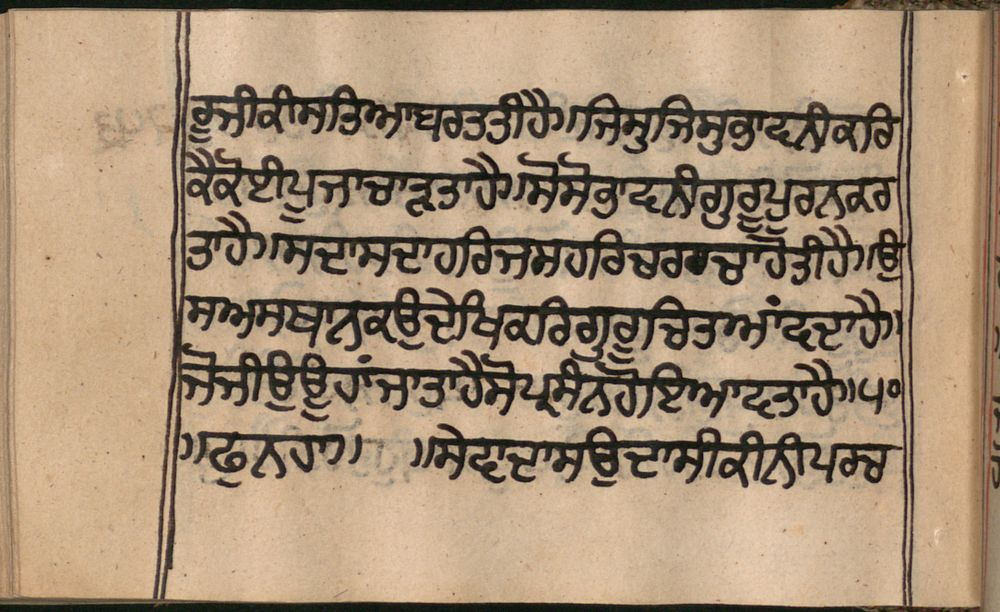 ਰੂਜੀਕੀਸਤਿਆਬਰਤਤੀਹੈ॥ਜਿਸੁਜਿਸੁਭਾਵਨੀਕਰਿ
ਕੈਕੋਈਪੂਜਾਚਾੜ੍ਹਤਾਹੈ॥ਸੋਸੋਭਾਵਨੀਗੁਰੂਪੂਰਨਕਰ
ਤਾਹੈ॥ਸਦਾਸਦਾਹਰਿਜਸਹਰਿਚਰਚਾਹੋਤੀਹੈ॥ਉ
ਸਅਸਥਾਨਕਉਦੇਖਿਕਰਿਗੁਰੂਚਿਤਆਂਵਦਾਹੈ॥
ਜੋਜੀਉਊਹਾਂਜਾਤਾਹੈਸੋਪ੍ਰਸੰਨਹੋਇਆਵਤਾਹੈ॥੫੦
॥ਢੁਨਹਾ॥ ॥ਸੇਵਾਦਾਸਉਦਾਸੀਕੀਨੀਪਰਚ